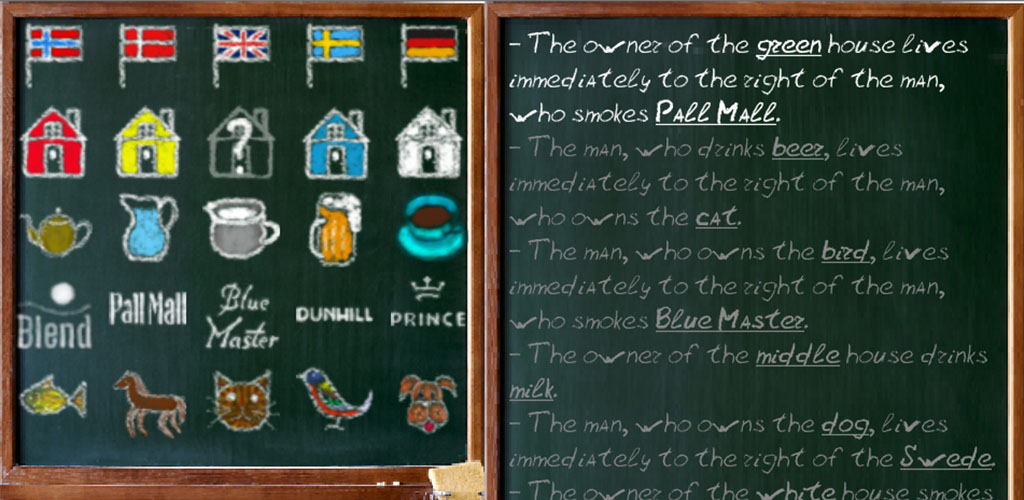 ?
Blend
Pall Mall
Blue
Master
DUNHILL
PRINCE
- The owner of the green house lives
immediately to the right of the man,
who smokes Pall Mall.
- The man, who drinks beer, lives
immediately to the right of the man,
who owns the cat.
- The man, who owns the bird, lives
immediately to the right of the man,
who smokes Blue Master.
- The owner of the middle house drinks
milk.
- The man, who owns the dog, lives
immediately to the right of the Swede.
- The owner of the white house smokes